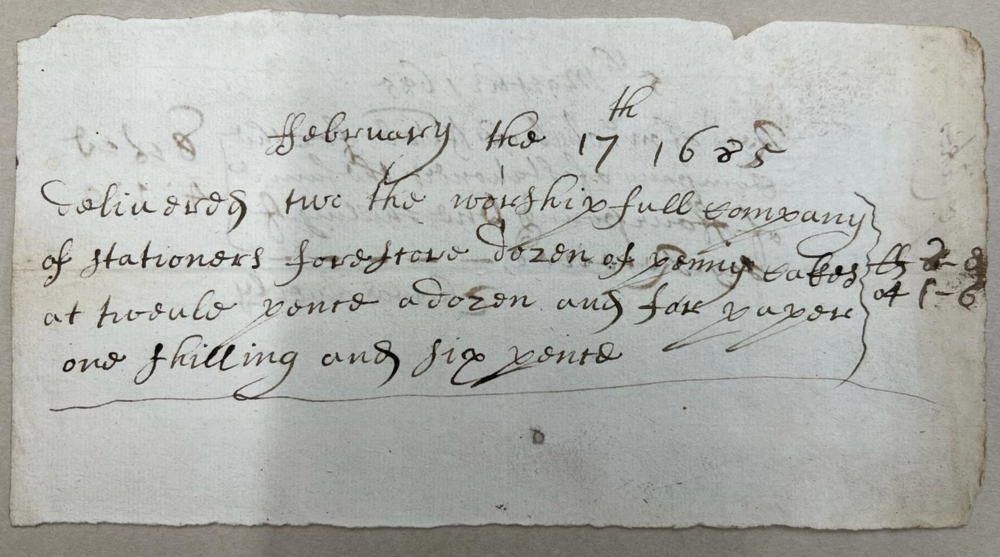 ffebruary the 17th 1685
deliuered two the worshipfull company
of stationers forescore dozen of penny cakes
at tweule pence a dozen and for paper
one shilling and six pence
04 1-6